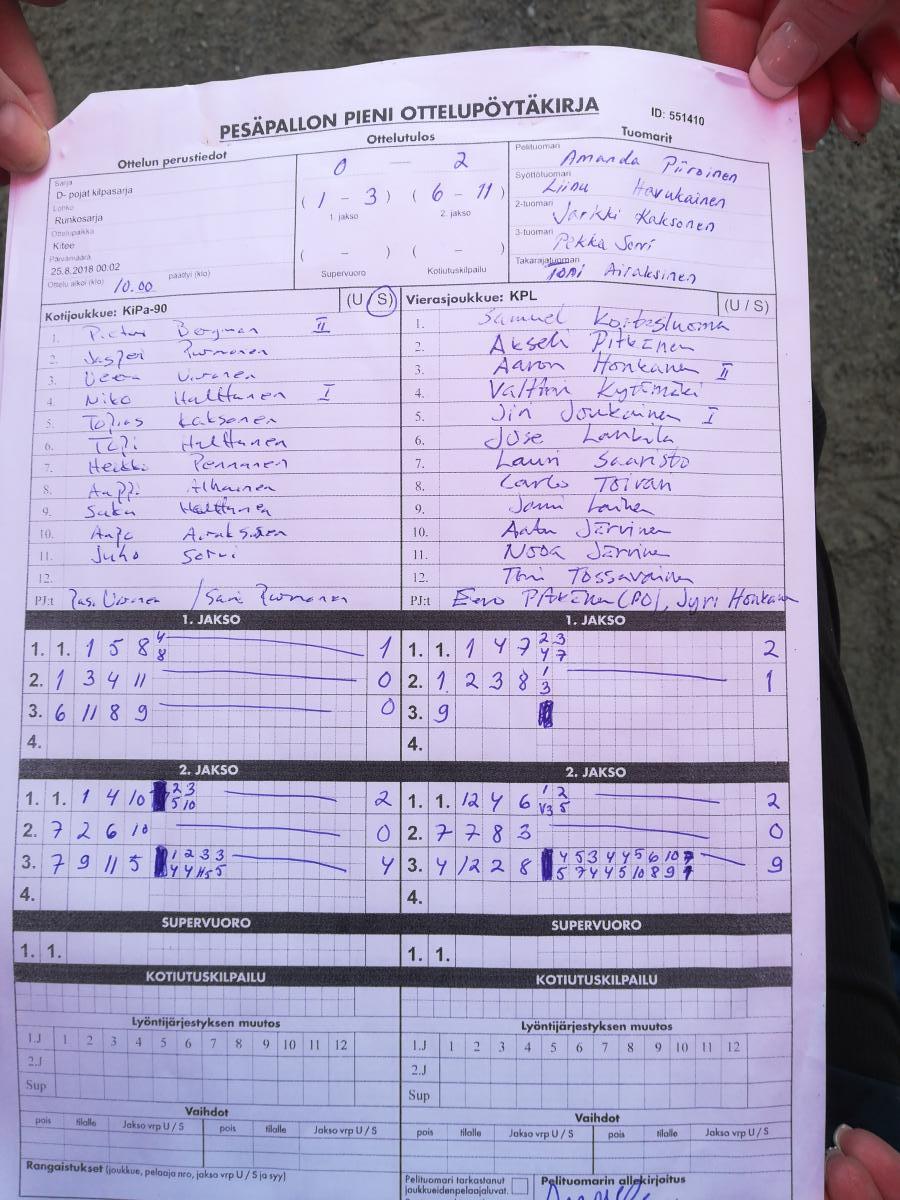 PESÄPALLON PIENI OTTELUPÖYTÄKIRJA
ID: 551410
Ottelun perustiedot
Sarja
D- pojat kilpasarja
Lohko
Runkosarja
Ottelupaikka
Kitee
Päivämäärä
25.8.2018 00:02
Ottelu alkoi (klo) 10.00 päättyi (klo)
Ottelutulos
0 — 2
(1 - 3) (6 - 11)
1. jakso 2. jakso
( - ) ( - )
Supervuoro Kotiutuskilpailu
Tuomarit
Pelituomari Amanda Piiroinen
Syöttötuomari Liinu Harukainen
2-tuomari Jarkki Kaksonen
3-tuomari Pekka Sorri
Takarajatuomari Toni Airaksinen
Kotijoukkue: KiPa-90 (U / S)
1. Bergman II
2. Jasperi Purmonen
3. Veera
4. Niko Halttunen I
5. Tobias Kaksonen
6. Topi Halttunen
7. Heikki Pennanen
8. Anppi Alhainen
9. Saku Halttunen
10. Anje Airaksinen
11. Juho Sorri
12.
PJ:t / Sami Purmonen
Vierasjoukkue: KPL (U / S)
1. Samuel
2. Akseli Pitkänen
3. Aaron Honkanen II
4. Valtteri Kytömäki
5. Jiri Joukainen I
6. Jose Lankila
7. Lauri Saaristo
8. Carlo Toivan
9. Joni Laine
10. Anton Järvinen
11. Nooa Järvinen
12. Toni Tossavainen
PJ:t Eero Pitkänen (PO), Jyri Honkanen
1. JAKSO
1. 1. 1 5 8 4 8 1
2. 1 3 4 11 0
3. 6 11 8 9 0
4.
1. JAKSO
1. 1. 1 4 7 2 3 4 7 2
2. 1 2 3 8 1 3 1
3. 9
4.
2. JAKSO
1. 1. 1 4 10 2 3 5 10 2
2. 7 2 6 10 0
3. 7 9 11 5 1 2 3 3 4 4 11 5 5 4
4.
2. JAKSO
1. 1. 12 4 6 1 2 V3 5 2
2. 7 7 8 3 0
3. 4 12 2 8 4 5 3 4 4 5 6 10 7 5 7 4 4 5 10 8 9 1 9
4.
SUPERVUORO
1. 1.
SUPERVUORO
1. 1.
KOTIUTUSKILPAILU
KOTIUTUSKILPAILU
Lyöntijärjestyksen muutos
1.J 1 2 3 4 5 6 7 8 9 10 11 12
2.J
Sup
Lyöntijärjestyksen muutos
1.J 1 2 3 4 5 6 7 8 9 10 11 12
2.J
Sup
Vaihdot
pois tilalle Jakso vrp U / S pois tilalle Jakso vrp U / S
Vaihdot
pois tilalle Jakso vrp U / S pois tilalle Jakso vrp U / S
Rangaistukset (joukkue, pelaaja nro, jakso vrp U / S ja syy)
Pelituomari tarkastanut
joukkueidenpelaajaluvat.
Pelituomarin allekirjoitus